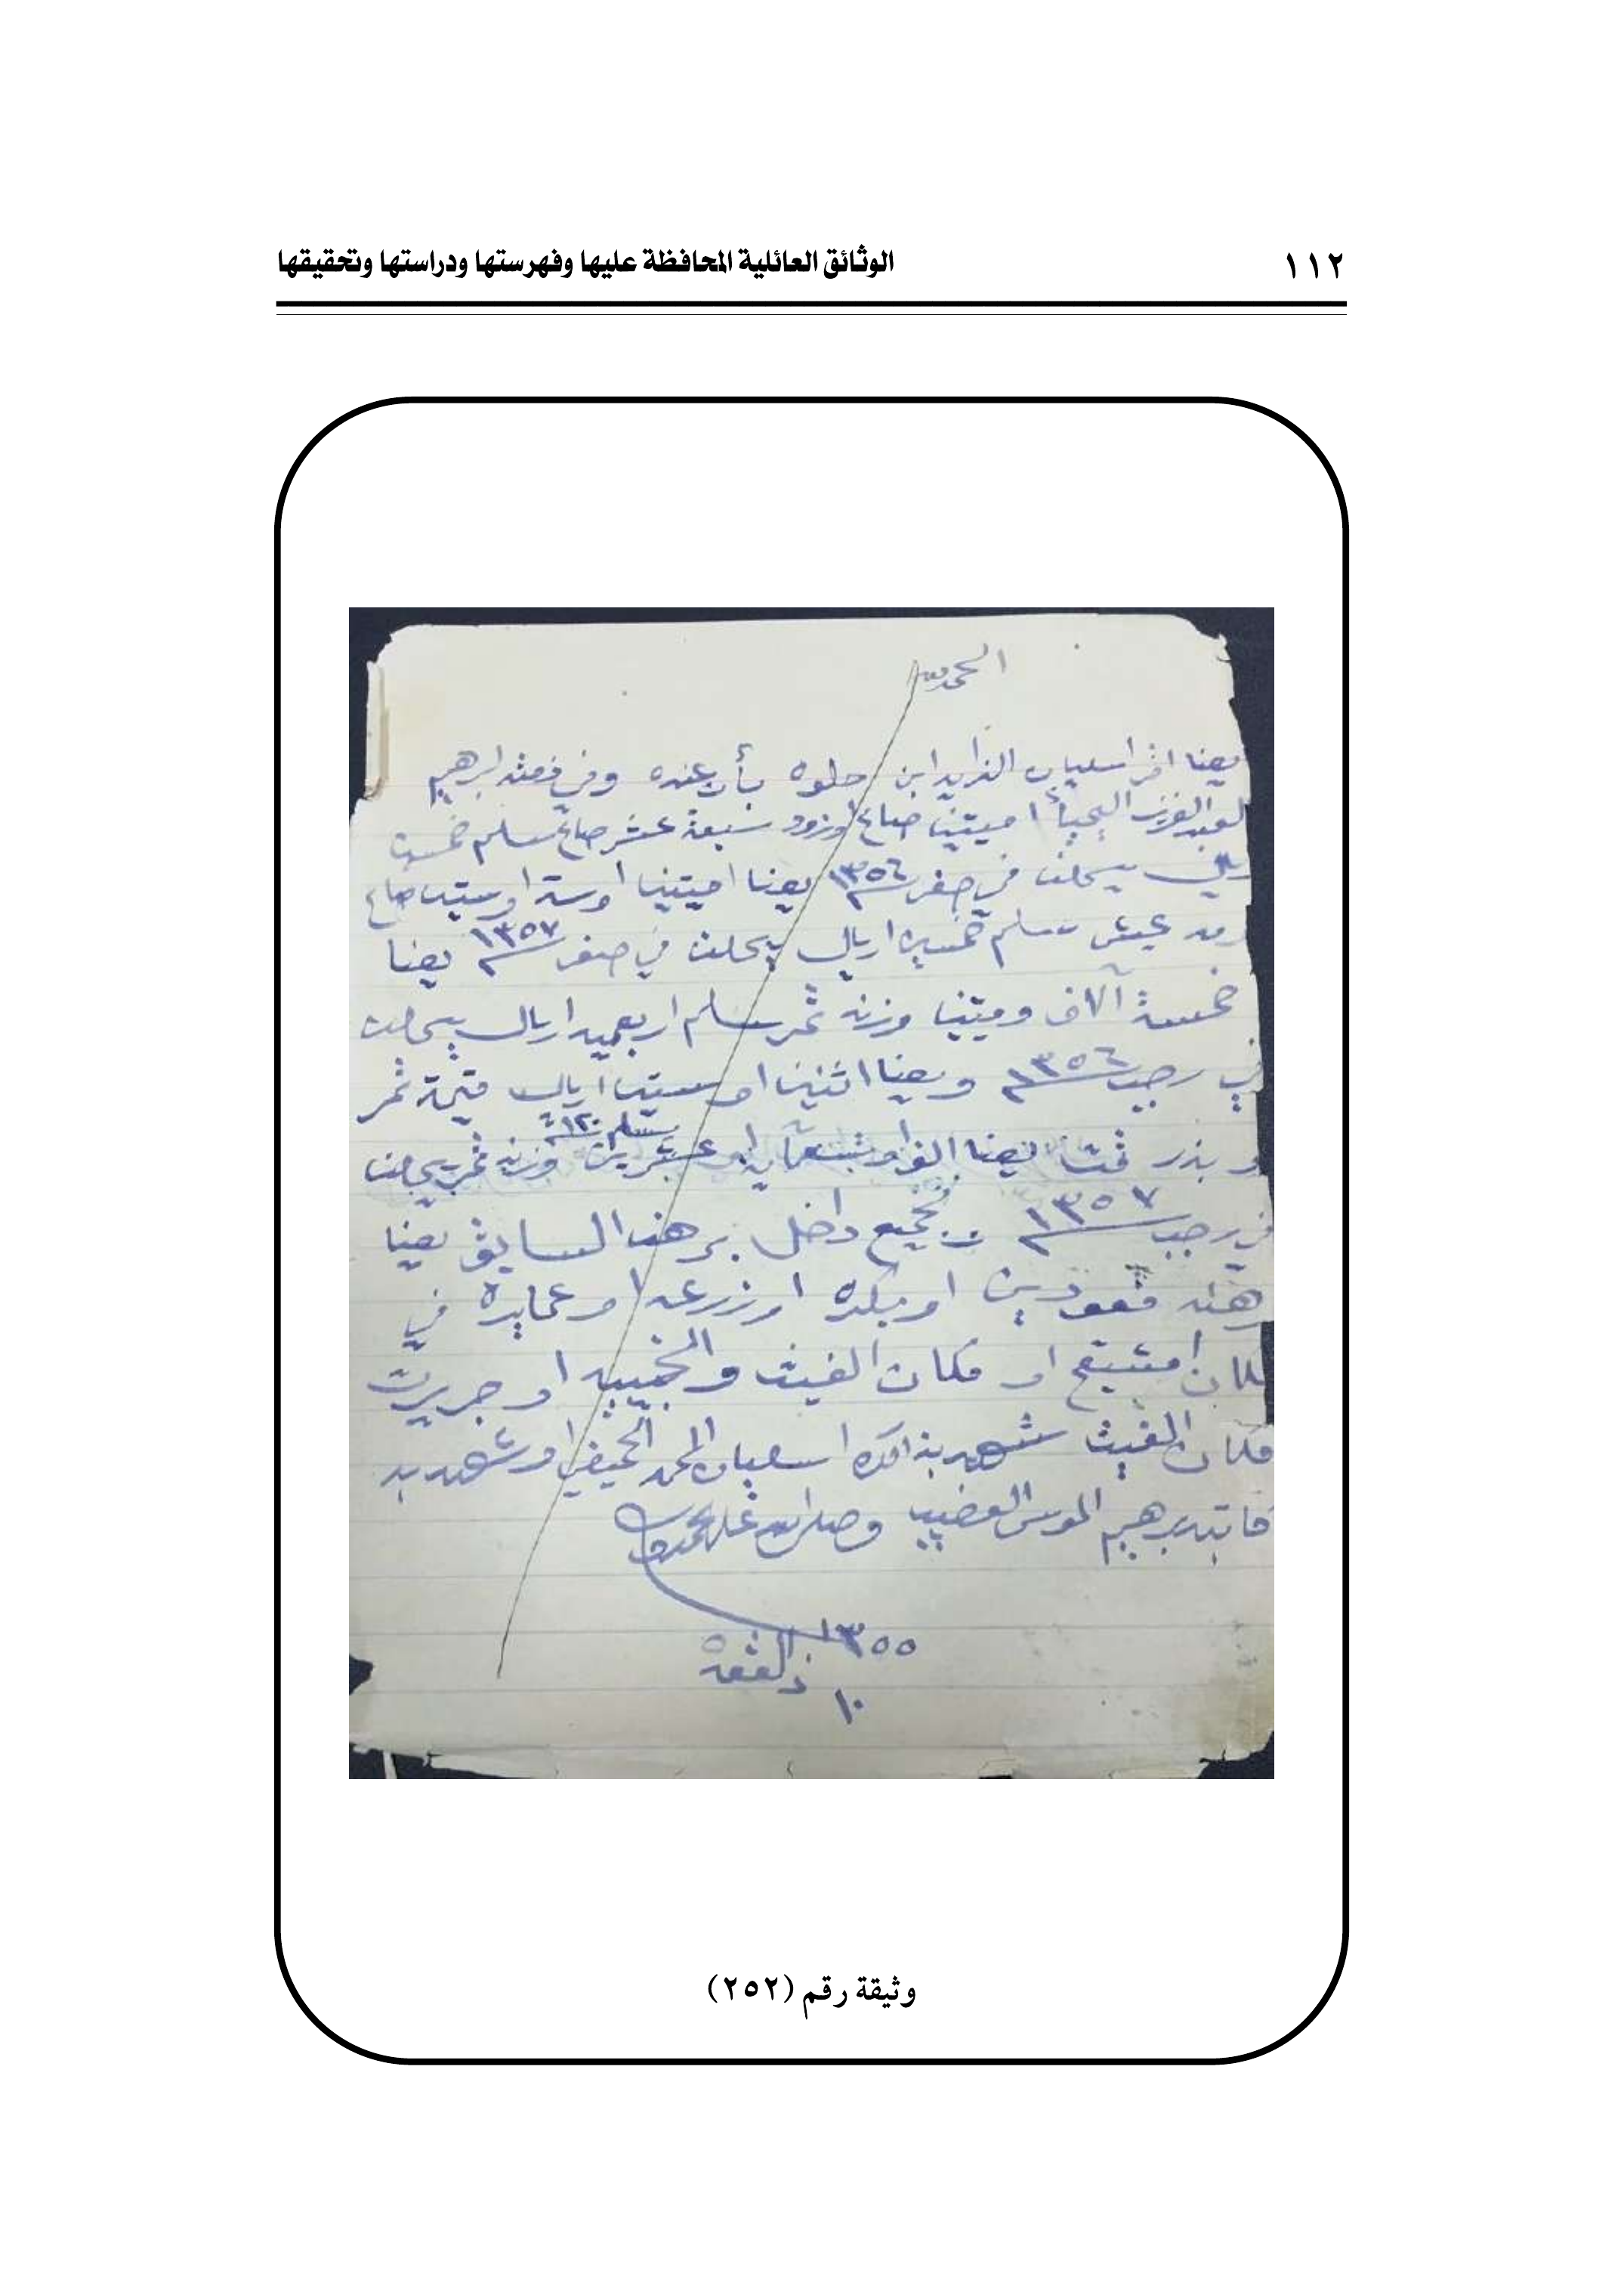 ١١٢
الوثائق العائلية المحافظة عليها وفهرستها ودراستها وتحقيقها
الحمد لله
يعنا اقر اسليمان الزايد ابن حلوه بأن عنده وفي ذمته ابرهيم
لعبد العزيز اليحيأ اميتين صاع اوزود سبعة عشر صاع سلم خمست
ريال يحلن في صفر ١٣٥٦ يعنا اميتين اوستة اوستين صاع
عيش سلم خمسين اريال يحلن في صفر ١٣٥٧ يعنا
خمسة آلاف وميتين وزنه تمر سلم اربعمية اريال يحلن
في رجب ١٣٥٦ ويعنا اثنين اوستين اريال قيمة تمر
وبذر قت يعنا الف اوتسعماية اوعشرين وزنه تمر يحلن
سلم ١٢٠
في رجب ١٣٥٧ جميع داخل برهنه السابق يعنا
رهنه قعودين اوبكره اوزرعه اوعمايره في
مكان امشيقح او مكان الغيث والخبيبيه اوجريرت
مكان الغيث شهد بذالك اسليمان المحمد الحميفي اوشهد به
كاتبه برهيم الموسى العضيب وصلى الله على محمد
١٣٥٥
ذالقعدة
١٠
وثيقة رقم (٢٥٢)